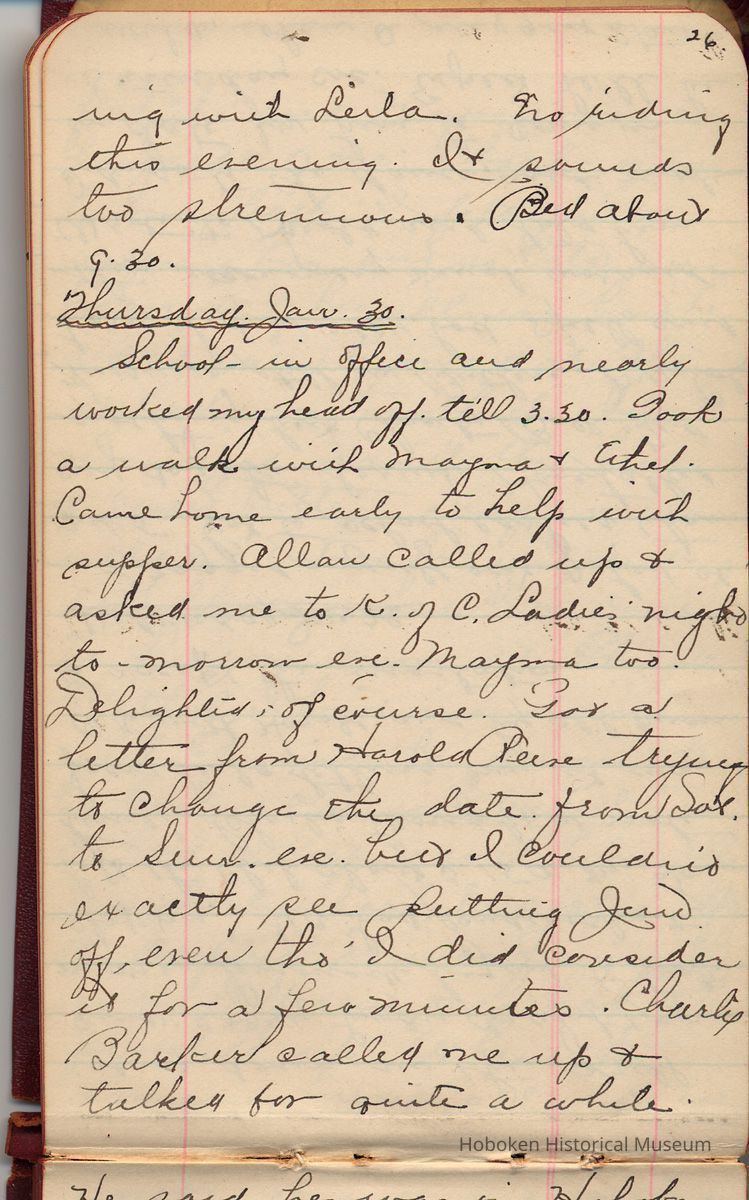 26
ing with Leila. No riding
this evening. It sounds
too strenuous. Bed about
9.30.
Thursday. Jan. 30.
School - in office and nearly
worked my head off till 3.30. Took
a walk with Mayma & Ethel.
Came home early to help with
supper. Allan called up &
asked me to K. of C. Ladies' night
to-morrow eve. Mayma too.
Delighted, of course. Got a
letter from Harold Reese trying
to change the date from Sat.
to Sun. eve. but I couldn't
exactly see putting Jim
off, even tho' I did consider
it for a few minutes. Charlie
Barker called me up &
talked for quite a while.
Hoboken Historical Museum
He said he was in